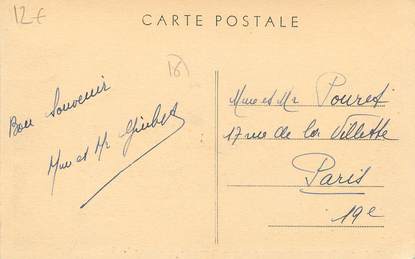 12€
CARTE POSTALE
16
Bon Souvenir
Mme et Mr
Mme et Mr Pouret
17 rue de la Villette
Paris
19e